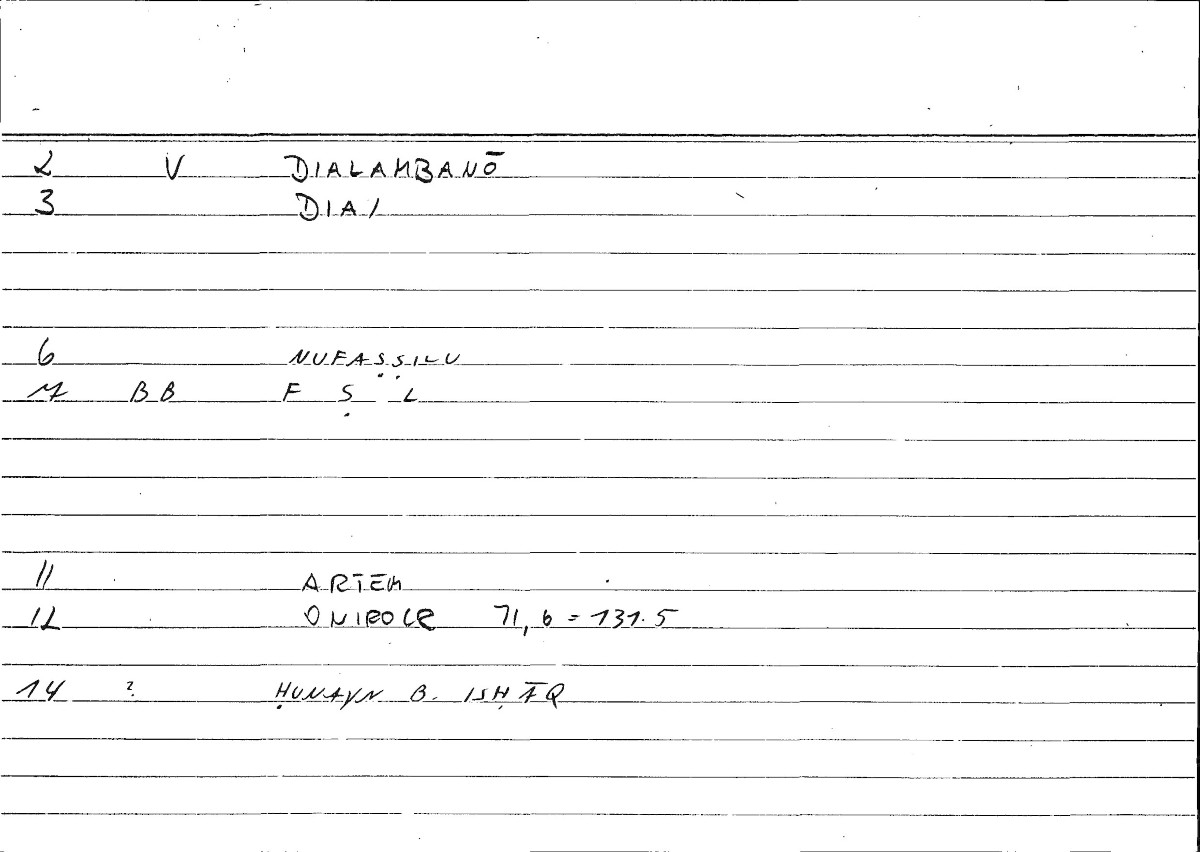 2 V DIALAMBANŌ
3 DIA/
6 NUFAṢṢILU
7 BB F Ṣ L
11 ARTEM
12 ONIROCR 71, 6 = 131.5
14 ? ḤUNAYN B. ISḤĀQ